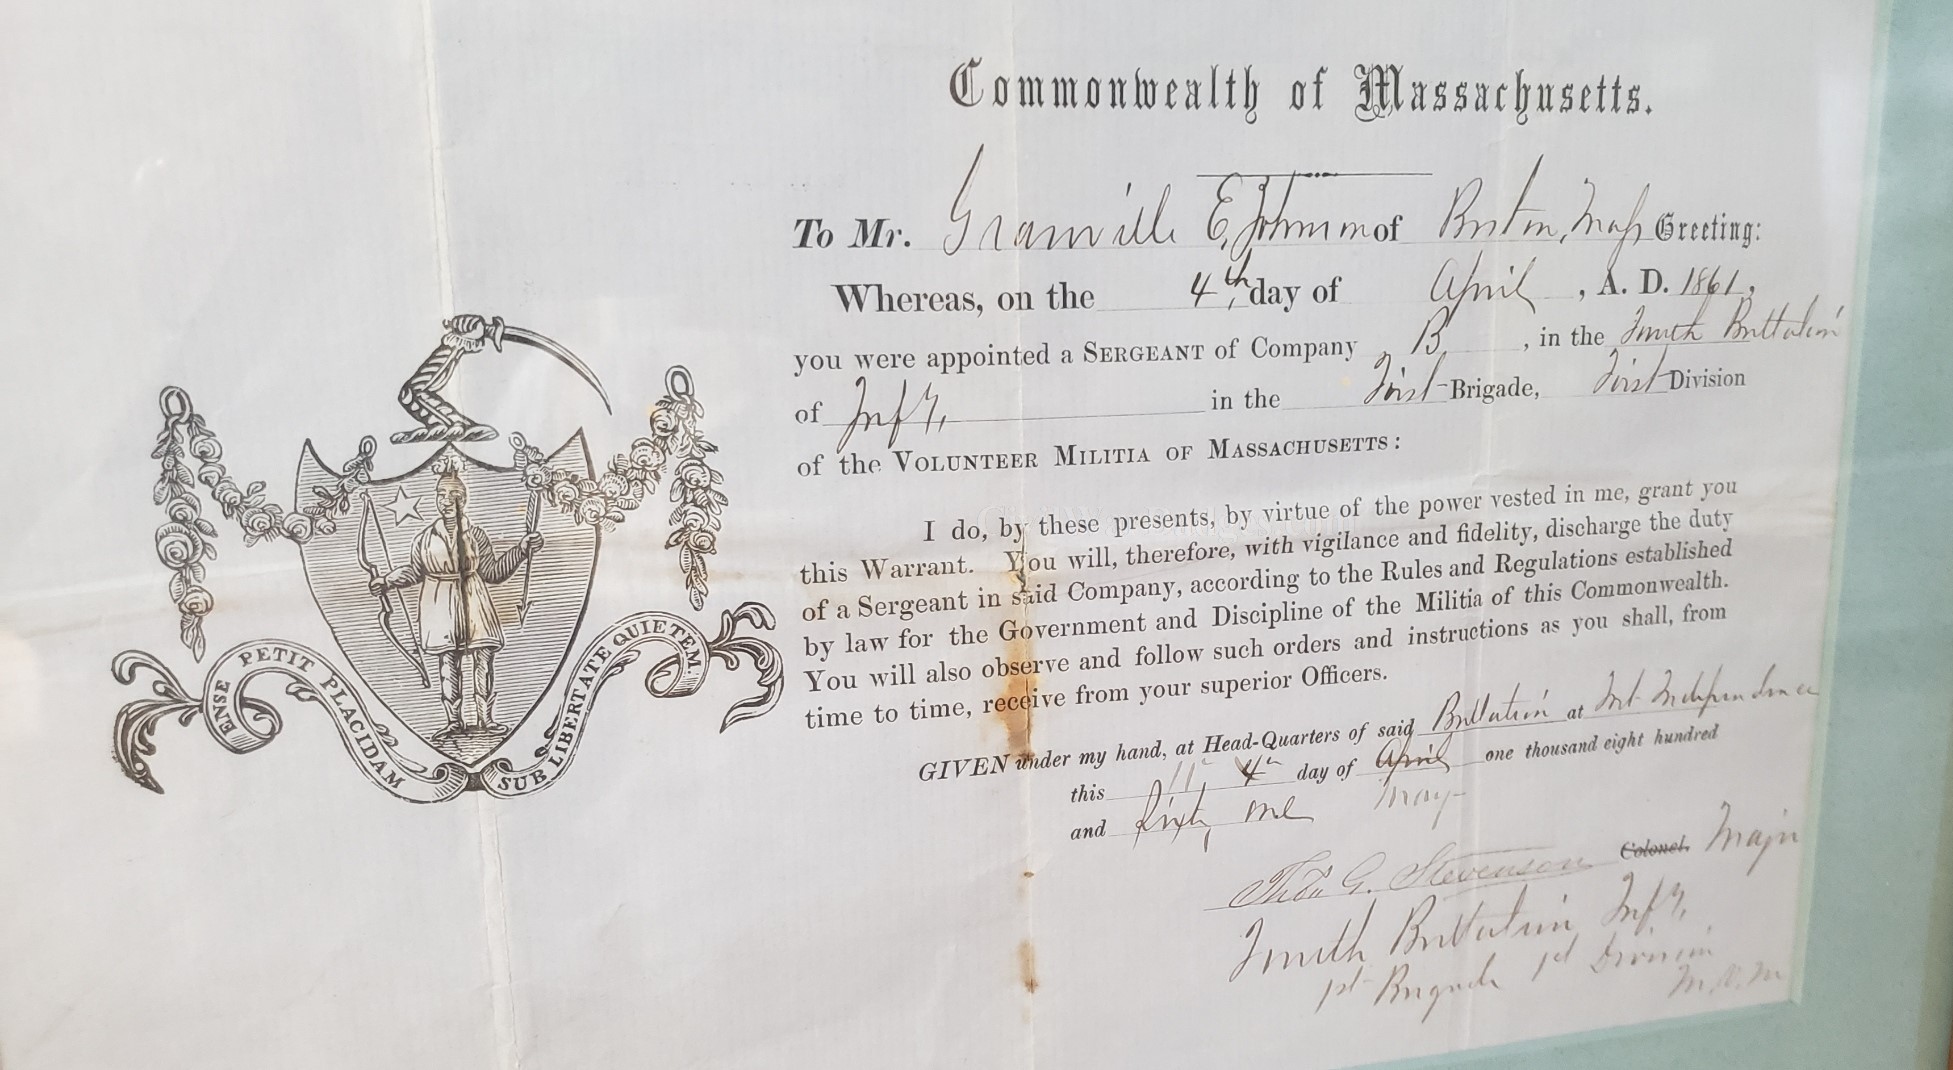 Commonwealth of Massachusetts.
To Mr. Granville E. Johnson of Boston, Mass Greeting:
Whereas, on the 4th, day of April, A. D. 1861,
you were appointed a SERGEANT of Company B, in the Fourth Battalion
of Infy, in the First Brigade, First Division
of the VOLUNTEER MILITIA OF MASSACHUSETTS:
I do, by these presents, by virtue of the power vested in me, grant you
this Warrant. You will, therefore, with vigilance and fidelity, discharge the duty
of a Sergeant in said Company, according to the Rules and Regulations established
by law for the Government and Discipline of the Militia of this Commonwealth.
You will also observe and follow such orders and instructions as you shall, from
time to time, receive from your superior Officers.
GIVEN under my hand, at Head-Quarters of said Battalion at Fort Independence
this 11th 4th day of April one thousand eight hundred
and Sixty one May
Thos G. Stevenson Colonel, Major
Fourth Battalion Infy,
1st Brigade 1st Division
M.V.M
ENSE PETIT PLACIDAM SUB LIBERTATE QUIETEM.